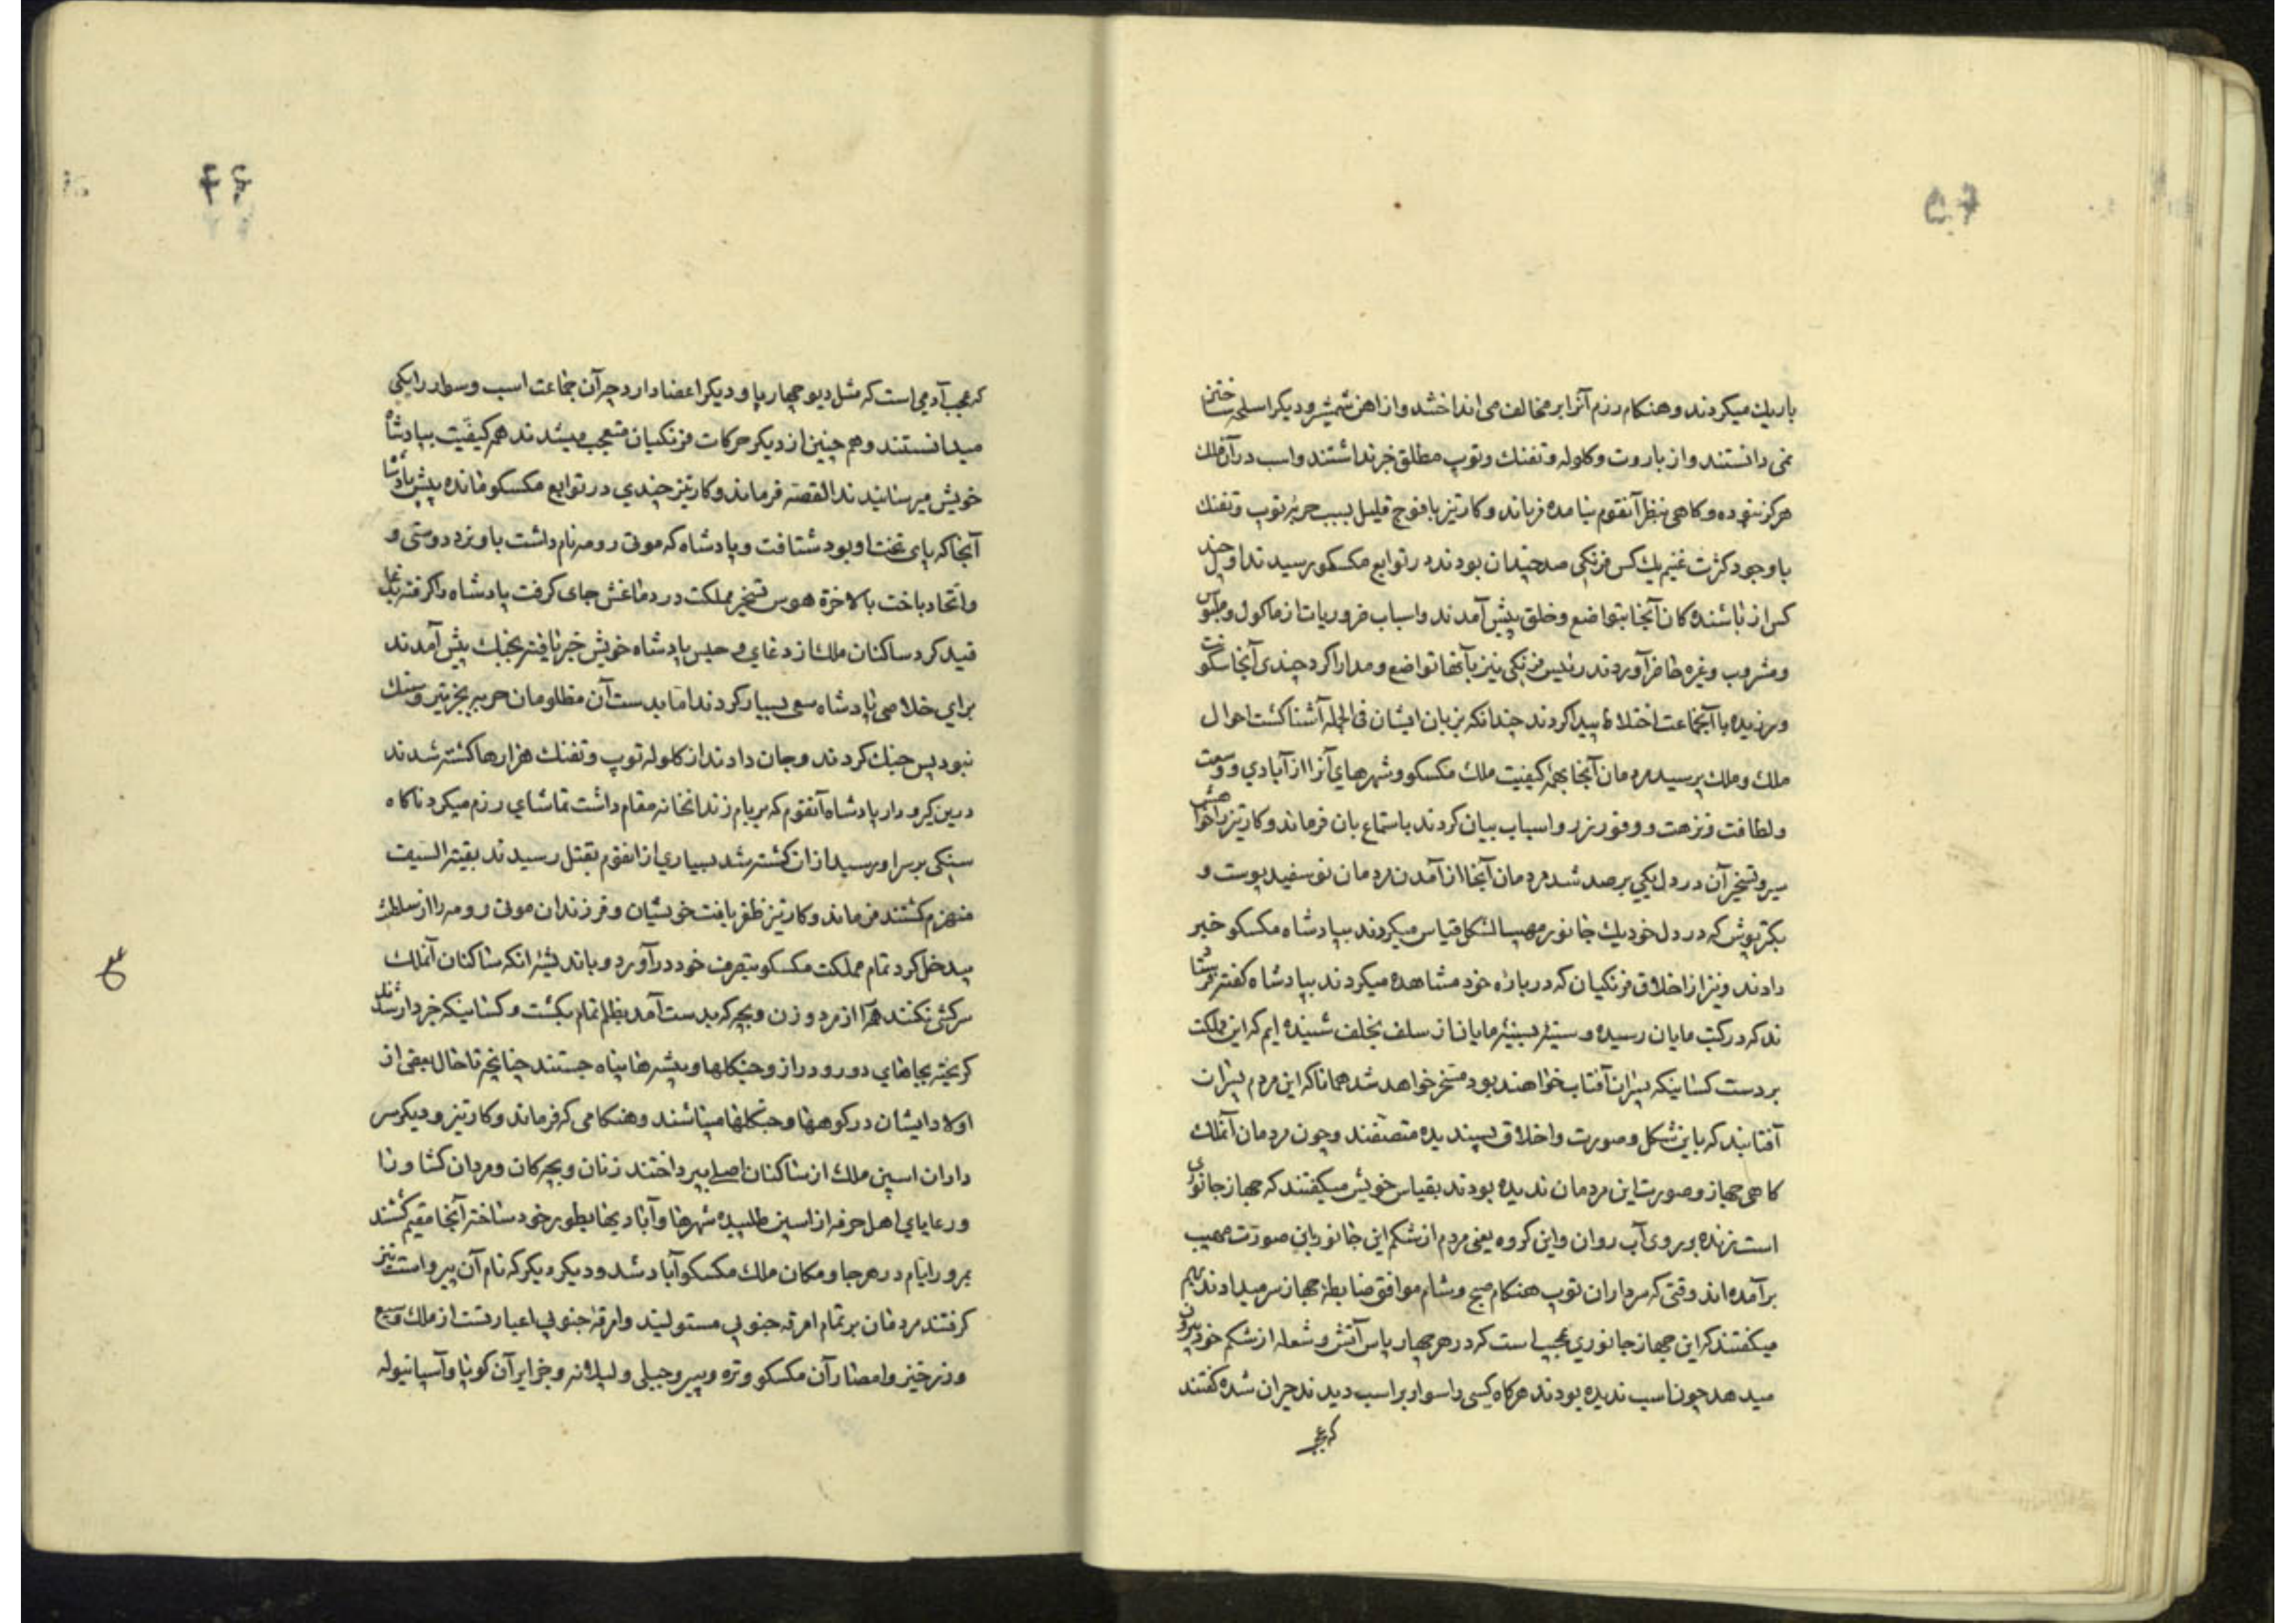 ۴۵
باریك میکردند و هنکام رزم آنرا بر مخالف می انداختند و از اهن شمشیر و دیکر اسلحه ساختن
نمی دانستند و از باروت و کلوله و تفنك و توپ مطلق خبر نداشتند و اسب در آن ملك
هرکز نبوده و کاهی بنظر آنقوم نیامده فرناند و کارتیز با فوج قلیل بسبب حربۀ توپ و تفنك
با وجود کثرت غنیم یك کس فرنکی صد چندان بودند در توابع مکسکو رسیدند اول چند
کس از باشنده کان آنجا بتواضع و خلق پیش آمدند و اسباب ضروریات از ماکول و ملبوس
و مشروب و غیره حاضر آوردند رئیس فرنکی نیز بآنها تواضع و مدارا کرد چندی آنجا سکونت
ورزیده با آنجماعت اختلاط پیدا کردند چندانکه بزبان ایشان فی الجمله آشنا کشت احوال
ملك و ملك پرسید مردمان آنجا همۀ کیفیت ملك مکسکو و شهرهای آنرا از آبادی و وسعت
و لطافت و نزهت و وفور زر و اسباب بیان کردند باستماع بان فرماند و کارتیز را خواهش
سیر و تسخیر آن در دل یکی بر صد شد مردمان آنجا از آمدن مردمان نو سفید پوست و
بکتر پوش که در دل خود یك جانور مهیب الشکل قیاس میکردند بپادشاه مکسکو خبر
دادند و نیز از اخلاق فرنکیان که در باره خود مشاهده میکردند بپادشاه کفته فرستا
ند که در کتب مایان رسیده و سینه بسینه مایان از سلف بخلف شنیده ایم که این مملکت
بر دست کسانیکه پسران آفتاب خواهند بود مسخر خواهد شد همانا که این مردم پسران
آفتابند که باین شکل و صورت و اخلاق پسندیده متصفند و چون مردمان آنملك
کاهی جهاز و صورت این مردمان ندیده بودند بقیاس خویش میکفتند که جهاز جانوری
است زنده بر روی آب روان و این کروه یعنی مردم از شکم این جانور باین صورت مهیب
برآمده اند وقتی که سرداران توپ هنکام صبح و شام موافق ضابطۀ جهاز سر میدادند بهم
میکفتند که این جهاز جانوری عجیب است که در هر چهار پاس آتش و شعله از شکم خود بیرون
میدهد چون اسب ندیده بودند هرکاه کسی را سوار بر اسب دیدند حیران شده کفتند
که عجب
۴۶
که عجب آدمی است که مثل دیو چهار پا و دیکر اعضا دارد چه آن جماعت اسب و سوار را یکی
میدانستند و هم چنین از دیکر حرکات فرنکیان متعجب میشدند همه کیفیت بپادشاه
خویش میرسانیدند القصه فرماند و کارتیز چندی در توابع مکسکو مانده پیش پادشاه
آنجا که پای تخت او بود شتافت و پادشاه که موتی زومه نام داشت با او نرد دوستی و
و اتحاد باخت بالاخرة هوس تسخیر مملکت در دماغش جای کرفت پادشاه را کرفته بدغا
قید کرد ساکنان ملك از دغای و حبس پادشاه خویش خبر یافته بجنك پیش آمدند
برای خلاصی پادشاه سعی بسیار کردند اما بدست آن مظلومان حربه بجز تیر و سنك
نبود پس جنك کردند و جان دادند از کلوله توپ و تفنك هزارها کشته شدند
درین کیر و دار پادشاه آنقوم که بر بام زندانخانه مقام داشت تماشای رزم میکرد ناکاه
سنکی بر سر او رسید از ان کشته شد بسیاری از انقوم بقتل رسیدند بقیة السیف
منهزم کشتند فرماند و کارتیز ظفر یافت خویشان و فرزندان موتی زومه را از سلطنت
بیدخل کرد تمام مملکت مکسکو بتصرف خود در آورد و باندیشۀ انکه ساکنان آنملك
سرکشی نکنند همه را از مرد و زن و بچه که بدست آمد بظلم تمام بکشت و کسانیکه خبردار شدند
کریخته بجاهای دور و دراز و جنکلها و بیشه ها پناه جستند چنانچه تا حال بعضی از
اولاد ایشان در کوهها و جنکلها میباشند و هنکامی که فرماند و کارتیز و دیکر سر
داران اسپین ملك از ساکنان اصلی بپرداختند زنان و بچه کان و مردان کشاورزا
و رعایای اهل حرفه از اسپین طلبیده شهرها و آبادیها بطور خود ساخته آنجا مقیم کشتند
بمرور ایام در هر جا و مکان ملك مکسکو آباد شد و دیکر دیکر که نام آن پیرو است نیز
کرفتند مردمان بر تمام امرقه جنوبی مستولیند و امرقه جنوبی اعبارتست از ملك وسیع
و زر خیز و امصار آن مکسکو و تره و پیرو و جیلی و لپلاته و جزایر آن کوبا و آسپانیوله